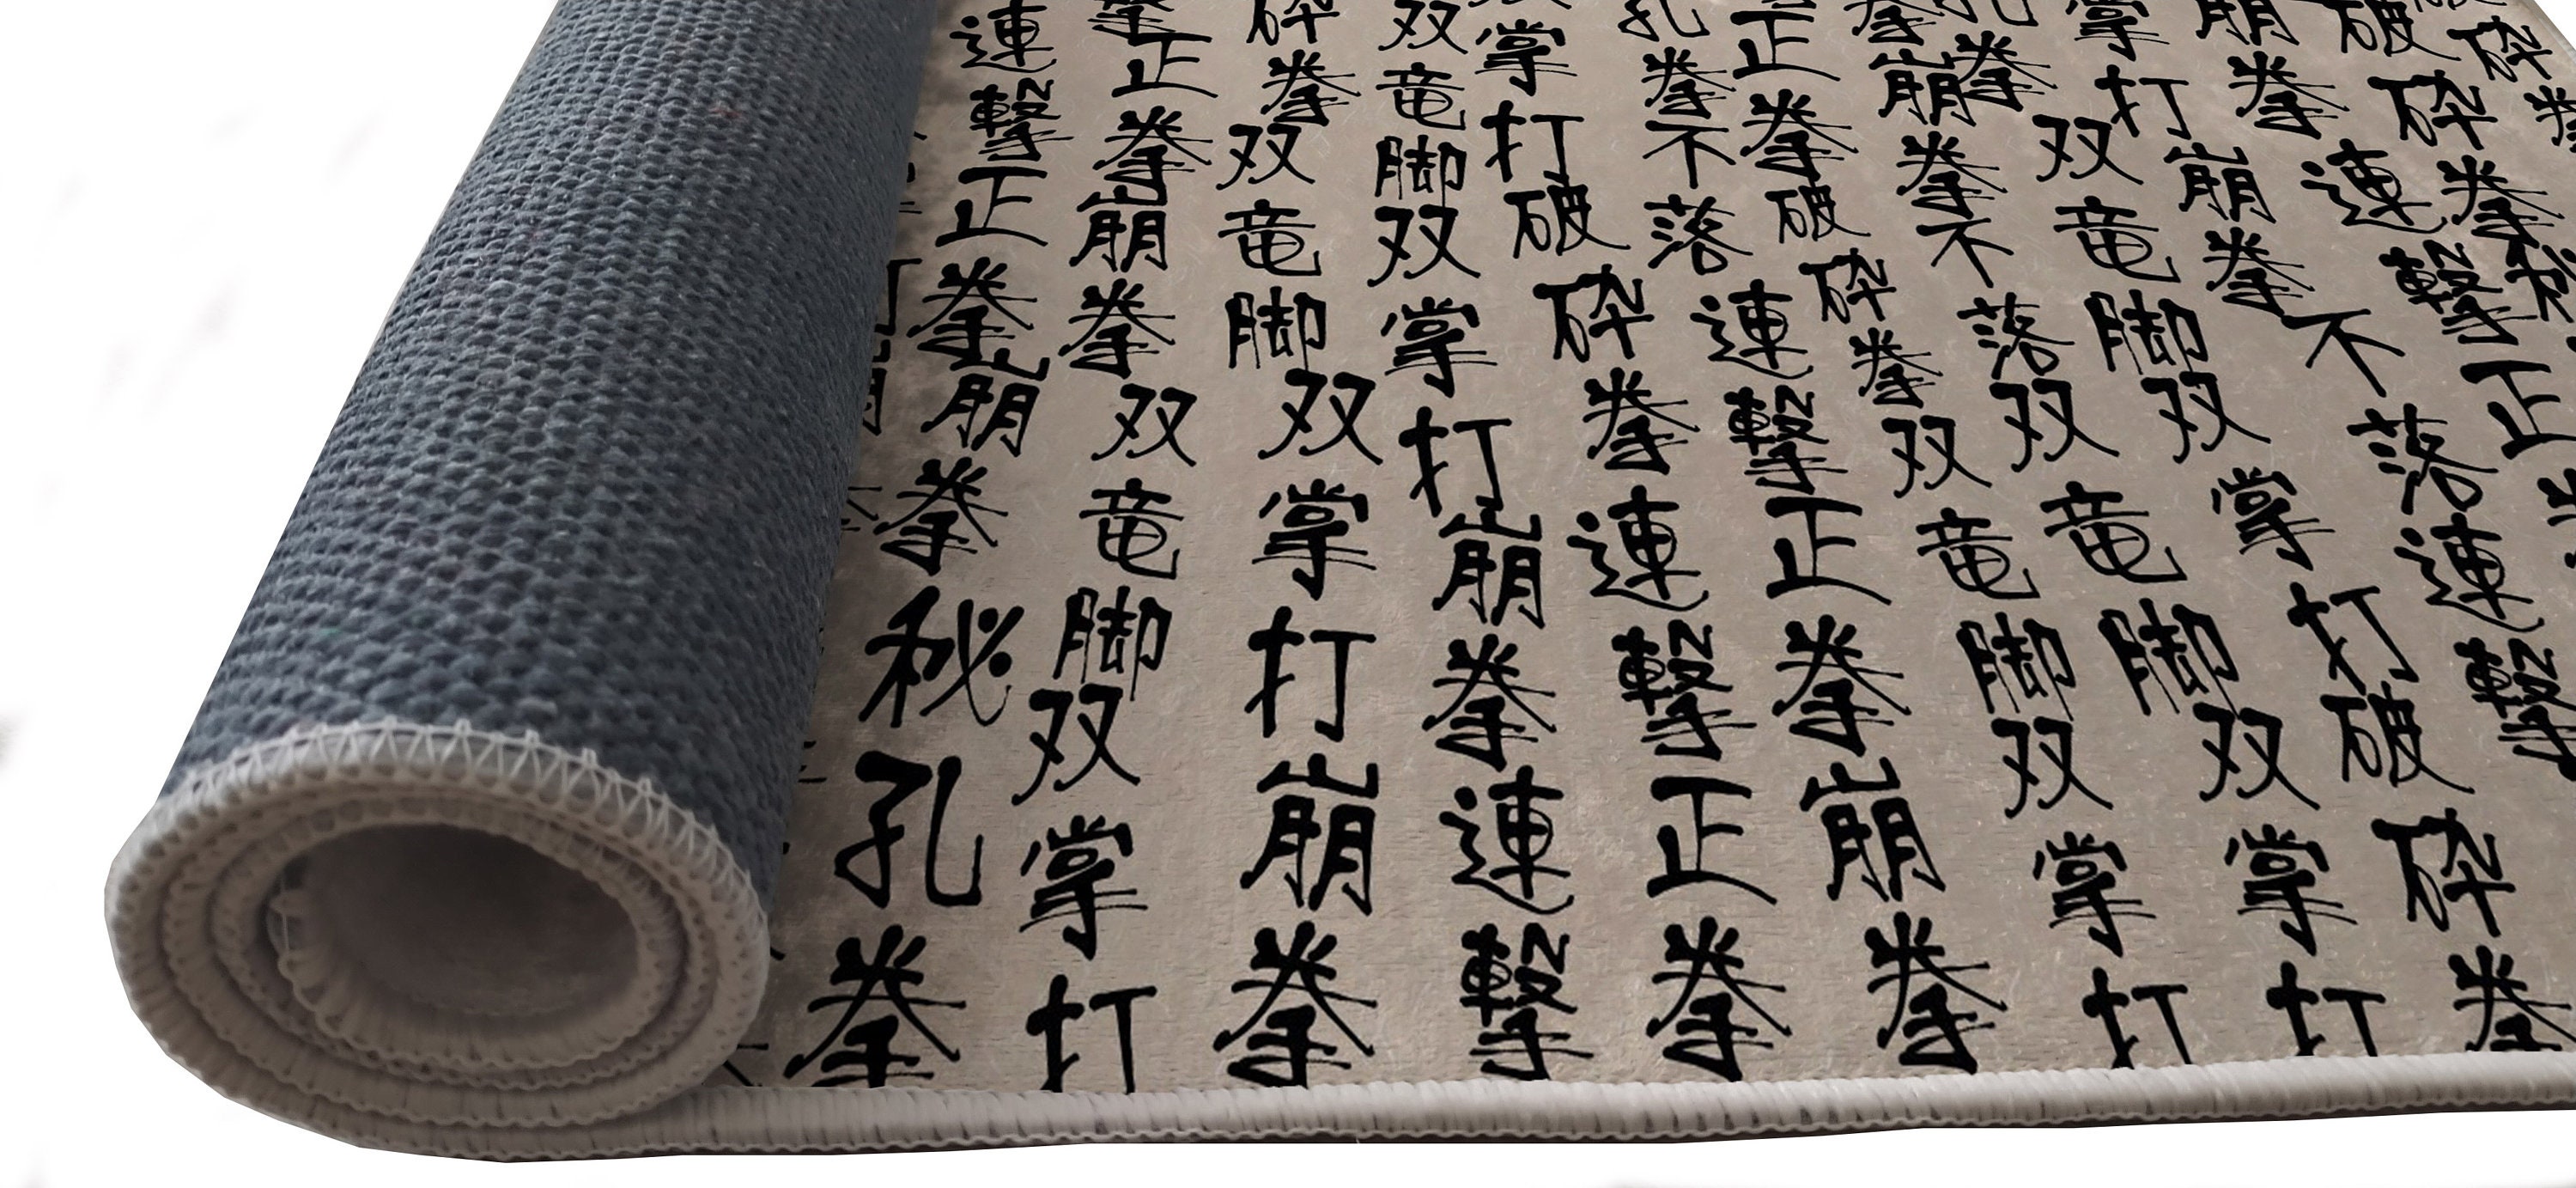 砕拳
破砕拳秘
崩拳連撃正
掌打崩拳不落連撃
孔拳双竜脚双掌打破砕拳
拳崩拳不落双竜脚双掌打
正拳破砕拳双竜脚双掌打
孔拳不落連撃正拳崩拳
掌打破砕拳連撃正拳
双竜脚双掌打崩拳連撃
砕拳双竜脚双掌打崩拳
撃正拳崩拳双竜脚双掌打
連撃正拳崩拳秘孔拳